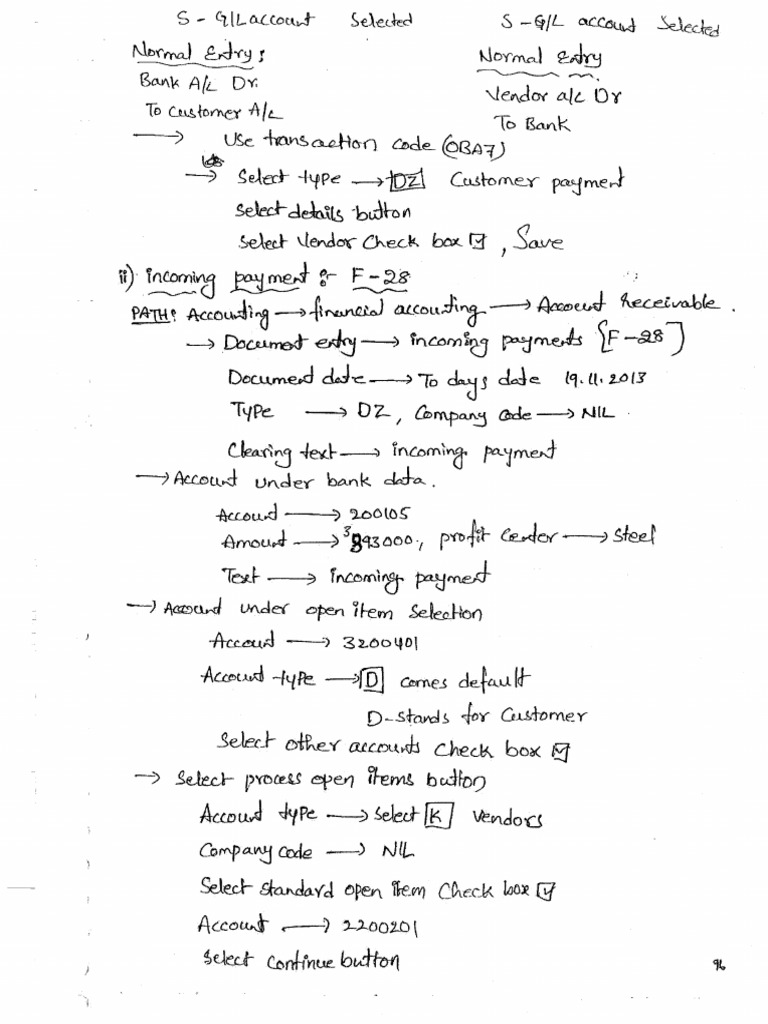 S - G/L account Selected S - G/L account Selected
Normal Entry: Normal Entry
Bank A/c Dr. Vendor a/c Dr
To Customer A/c To Bank
→ Use transaction code (OBA7)
→ Select type → DZ Customer payment
Select details button
Select Vendor Check box ☑, Save
ii) incoming payment :- F-28
PATH: Accounting → financial accounting → Account Receivable.
→ Document entry → incoming payments {F-28}
Document date → To days date 19.11.2013
Type → DZ, Company code → NIL.
Clearing text → incoming payment
→ Account under bank data.
Account → 200105
Amount → 393000, profit Center → Steel
Text → incoming payment
→ Account under open item selection
Account → 3200401
Account type → D comes default
D-stands for Customer
Select other accounts Check box ☑
→ Select process open items button
Account type → select K vendors
Company code → NIL
Select standard open item Check box ☑
Account → 2200201
Select continue button
96